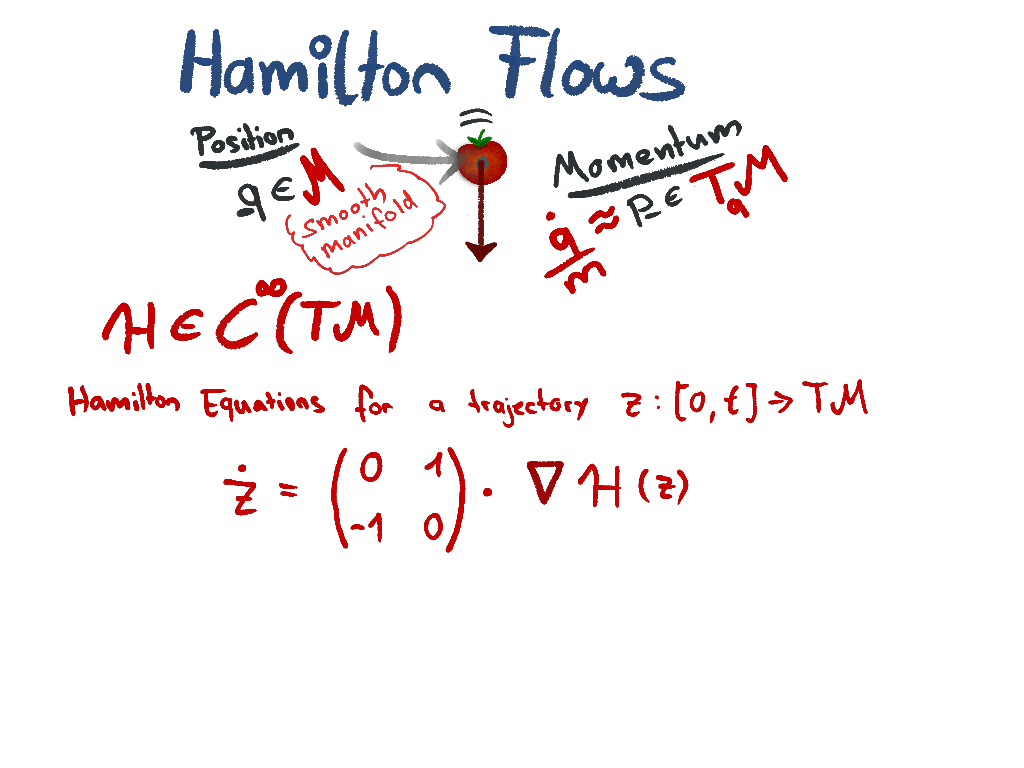 Hamilton Flows
Position
q ∈ M
smooth
manifold
Momentum
q̇/m ≈ p ∈ T_qM
H ∈ C^∞(TM)
Hamilton Equations for a trajectory z : [0, t] → TM
ż = (0 1
-1 0) · ∇H(z)